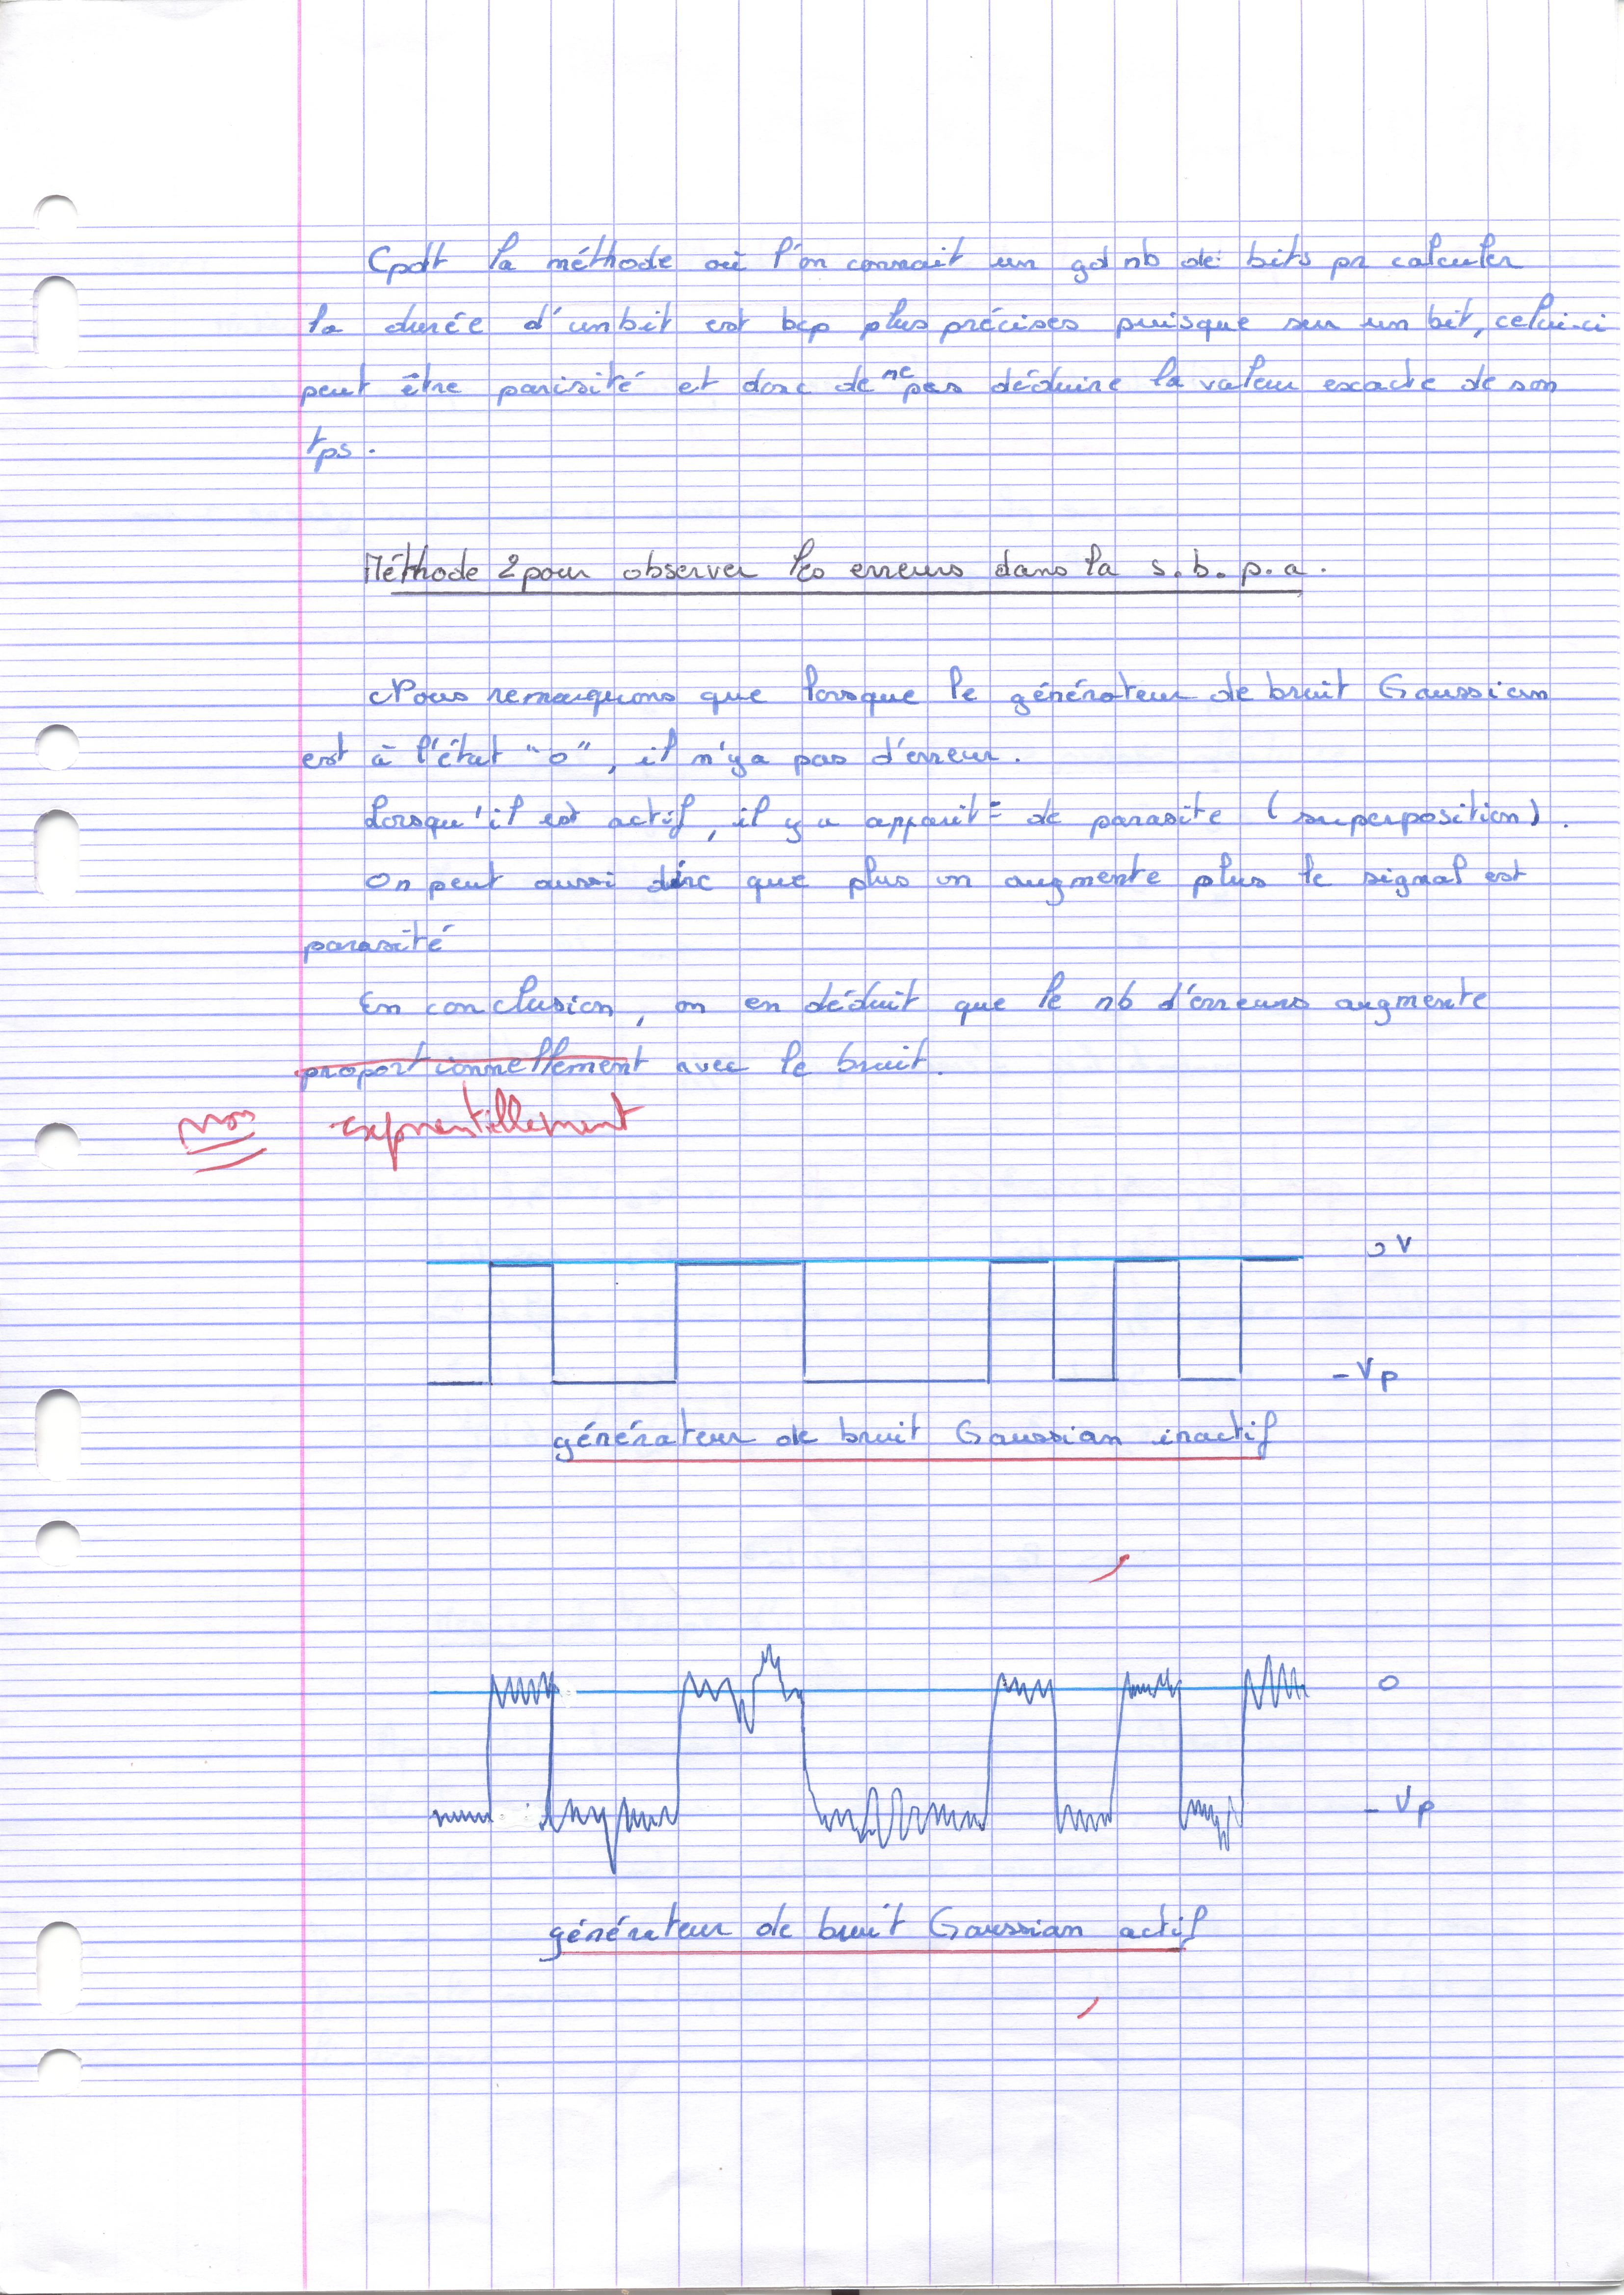 Cpdt la méthode où l'on connait un gd nb de bits pr calculer
la durée d'un bit est bcp plus précises puisque sur un bit, celui-ci
peut être parisité et donc de ne pas déduire la valeur exacte de son
tps.
Méthode 2 pour observer les erreurs dans la s.b.p.a.
Nous remarquons que lorsque le générateur de bruit Gaussian
est à l'état "0", il n'y a pas d'erreur.
Lorsqu'il est actif, il y a apparit° de parasite (superposition).
On peut aussi dire que plus on augmente plus le signal est
parasité
En conclusion, on en déduit que le nb d'erreurs augmente
proportionnellement avec le bruit.
non exponentillement
0V
-Vp
générateur de bruit Gaussian inactif
0
-Vp
générateur de bruit Gaussian actif